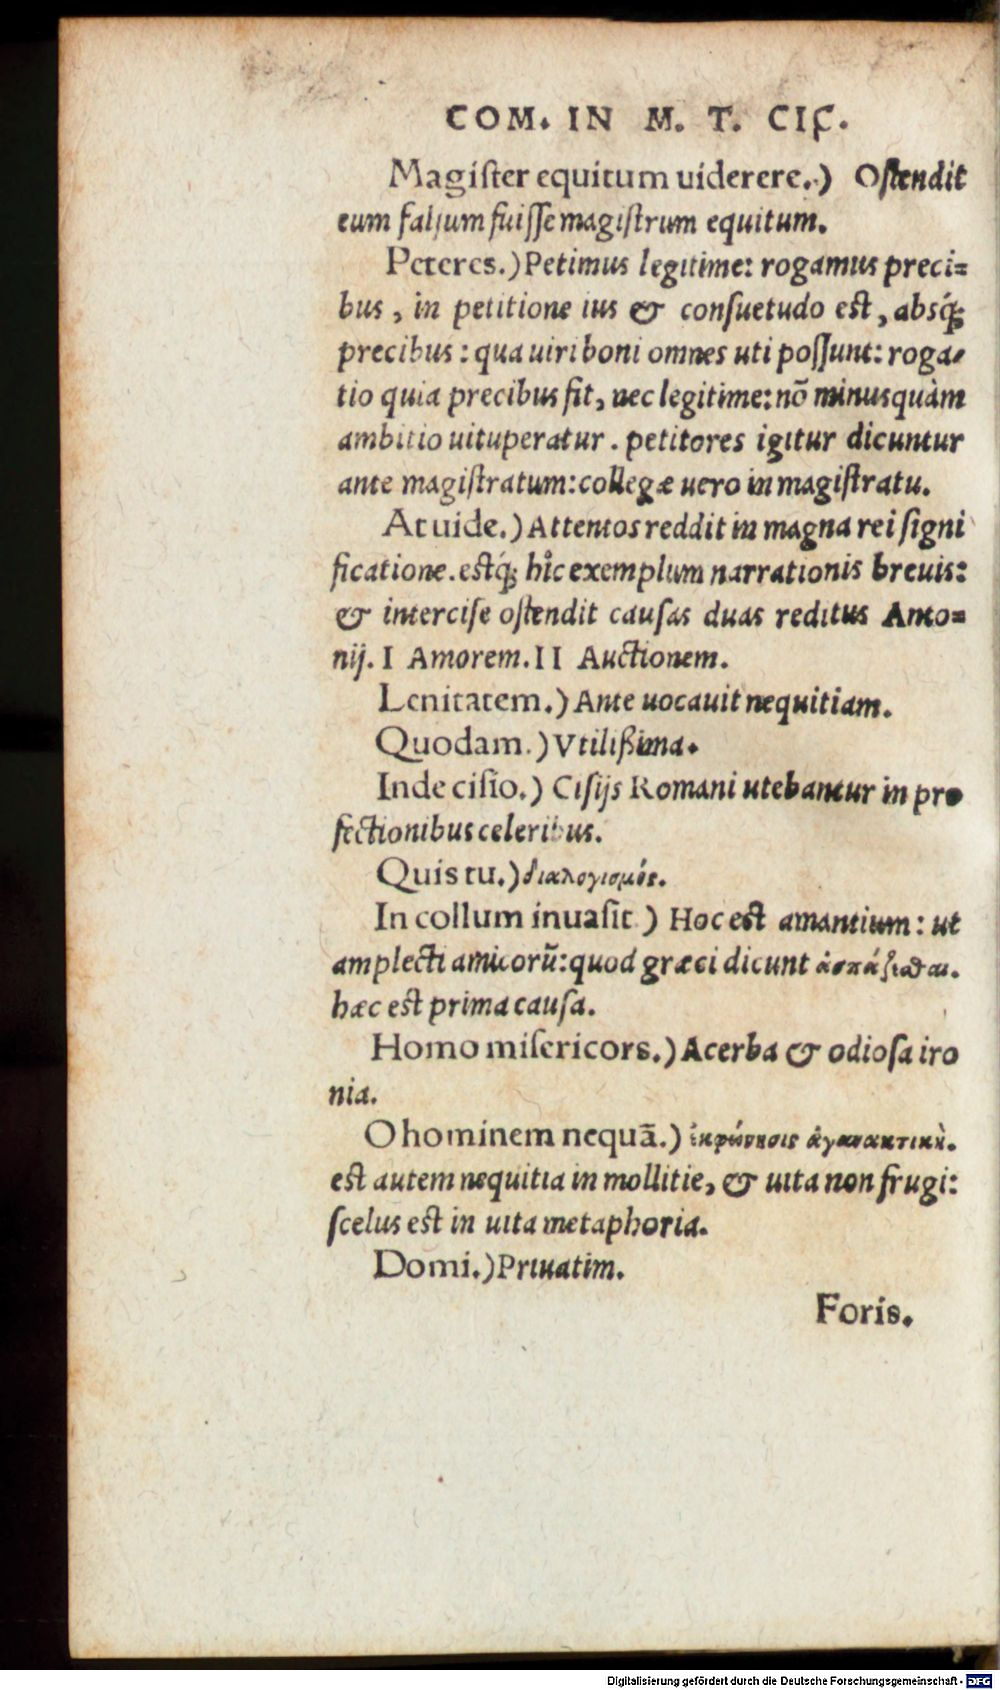 COM. IN M. T. CIC.
Magiſter equitum uiderere.) Oſtendit
eum falſum fuiſſe magiſtrum equitum.
Peteres.) Petimus legitime: rogamus preci=
bus, in petitione ius & conſuetudo eſt, abſq́;
precibus: qua uiri boni omnes uti poſſunt: roga-
tio quia precibus fit, nec legitime: nõ minusquàm
ambitio uituperatur. petitores igitur dicuntur
ante magiſtratum: collegæ uero in magiſtratu.
At uide.) Attentos reddit in magna rei ſigni
ficatione. eſtq́; hîc exemplum narrationis breuis:
& interciſe oſtendit cauſas duas reditus Anto=
nij. I Amorem. II Auctionem.
Lenitatem.) Ante uocauit nequitiam.
Quodam.) Vtilißima.
Inde ciſio.) Ciſijs Romani utebantur in pro
fectionibus celeribus.
Quis tu.) διαλογισμός.
In collum inuaſit.) Hoc eſt amantium: ut
amplecti amicorũ: quod græci dicunt ἀσπάζεσθαι.
hæc eſt prima cauſa.
Homo miſericors.) Acerba & odioſa iro
nia.
O hominem nequã.) ἐκφώνησις ἀγανακτική.
eſt autem nequitia in mollitie, & uita non frugi:
ſcelus eſt in uita metaphoria.
Domi.) Priuatim.
Foris.
Digitalisierung gefördert durch die Deutsche Forschungsgemeinschaft - DFG